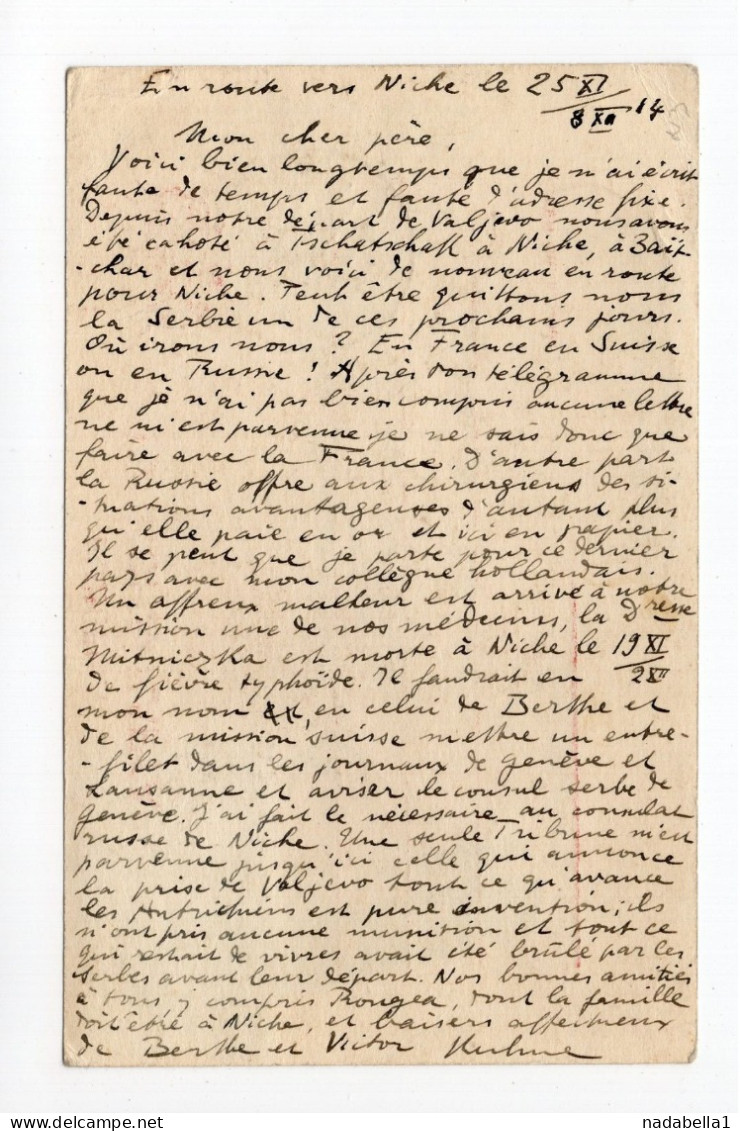 En route vers Niche le 25 XI
8 XII 14
Mon cher père,
Voici bien longtemps que je n'ai écrit
faute de temps et faute d'adresse fixe.
Depuis notre départ de Valjevo nous avons
été cahoté à Tschatschak à Niche, à Zaït-
-char et nous voici de nouveau en route
pour Niche. Peut être quittons nous
la Serbie un de ces prochains jours.
Où irons nous ? En France en Suisse
ou en Russie ! Après ton télégramme
que je n'ai pas bien compris aucune lettre
ne m'est parvenue je ne sais donc que
faire avec la France. D'autre part
la Russie offre aux chirurgiens des si-
-tuations avantageuses d'autant plus
qu'elle paie en or et ici en papier.
Il se peut que je parte pour ce dernier
pays avec mon collègue hollandais.
Un affreux malheur est arrivé à notre
mission une de nos médecins, la Dresse
Mitniczka est morte à Niche le 19 XI
2 XII
de fièvre typhoïde. Il faudrait en
mon nom, en celui de Berthe et
de la mission suisse mettre un entre-
-filet dans les journaux de Genève et
Lausanne et aviser le consul serbe de
Genève. J'ai fait le nécessaire au consulat
russe de Niche. Une seule Tribune m'est
parvenue jusqu'ici celle qui annonce
la prise de Valjevo tout ce qu'avance
les Autrichiens est pure invention; ils
n'ont pris aucune munition et tout ce
qui restait de vivres avait été brûlé par les
Serbes avant leur départ. Nos bonnes amitiés
à tous y compris Rougea, dont la famille
doit être à Niche, et baisers affectueux
de Berthe et Victor
nadabella1